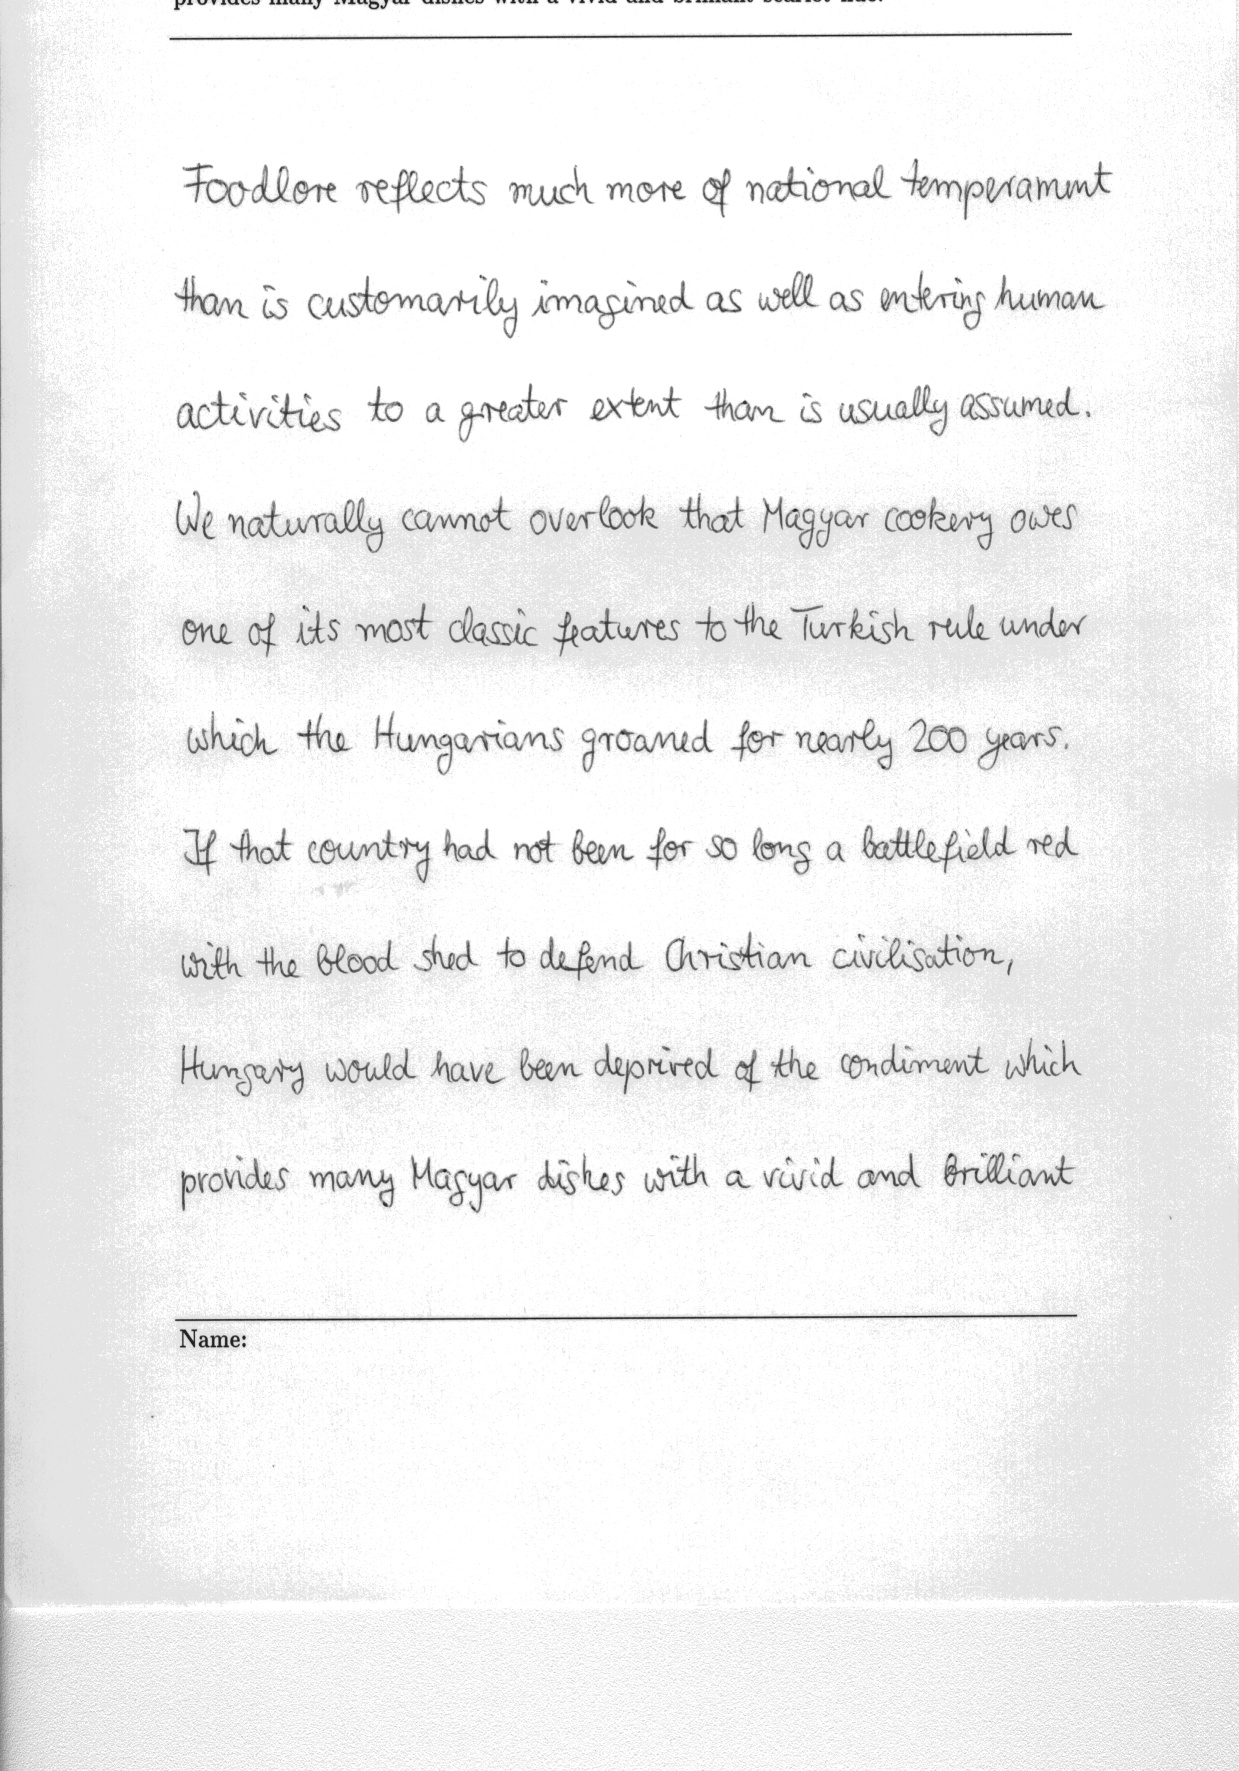 provides many Magyar dishes with a vivid and brilliant scarlet hue.
Foodlore reflects much more of national temperament
than is customarily imagined as well as entering human
activities to a greater extent than is usually assumed.
We naturally cannot overlook that Magyar cookery owes
one of its most classic features to the Turkish rule under
which the Hungarians groaned for nearly 200 years.
If that country had not been for so long a battlefield red
with the blood shed to defend Christian civilisation,
Hungary would have been deprived of the condiment which
provides many Magyar dishes with a vivid and brilliant
Name: